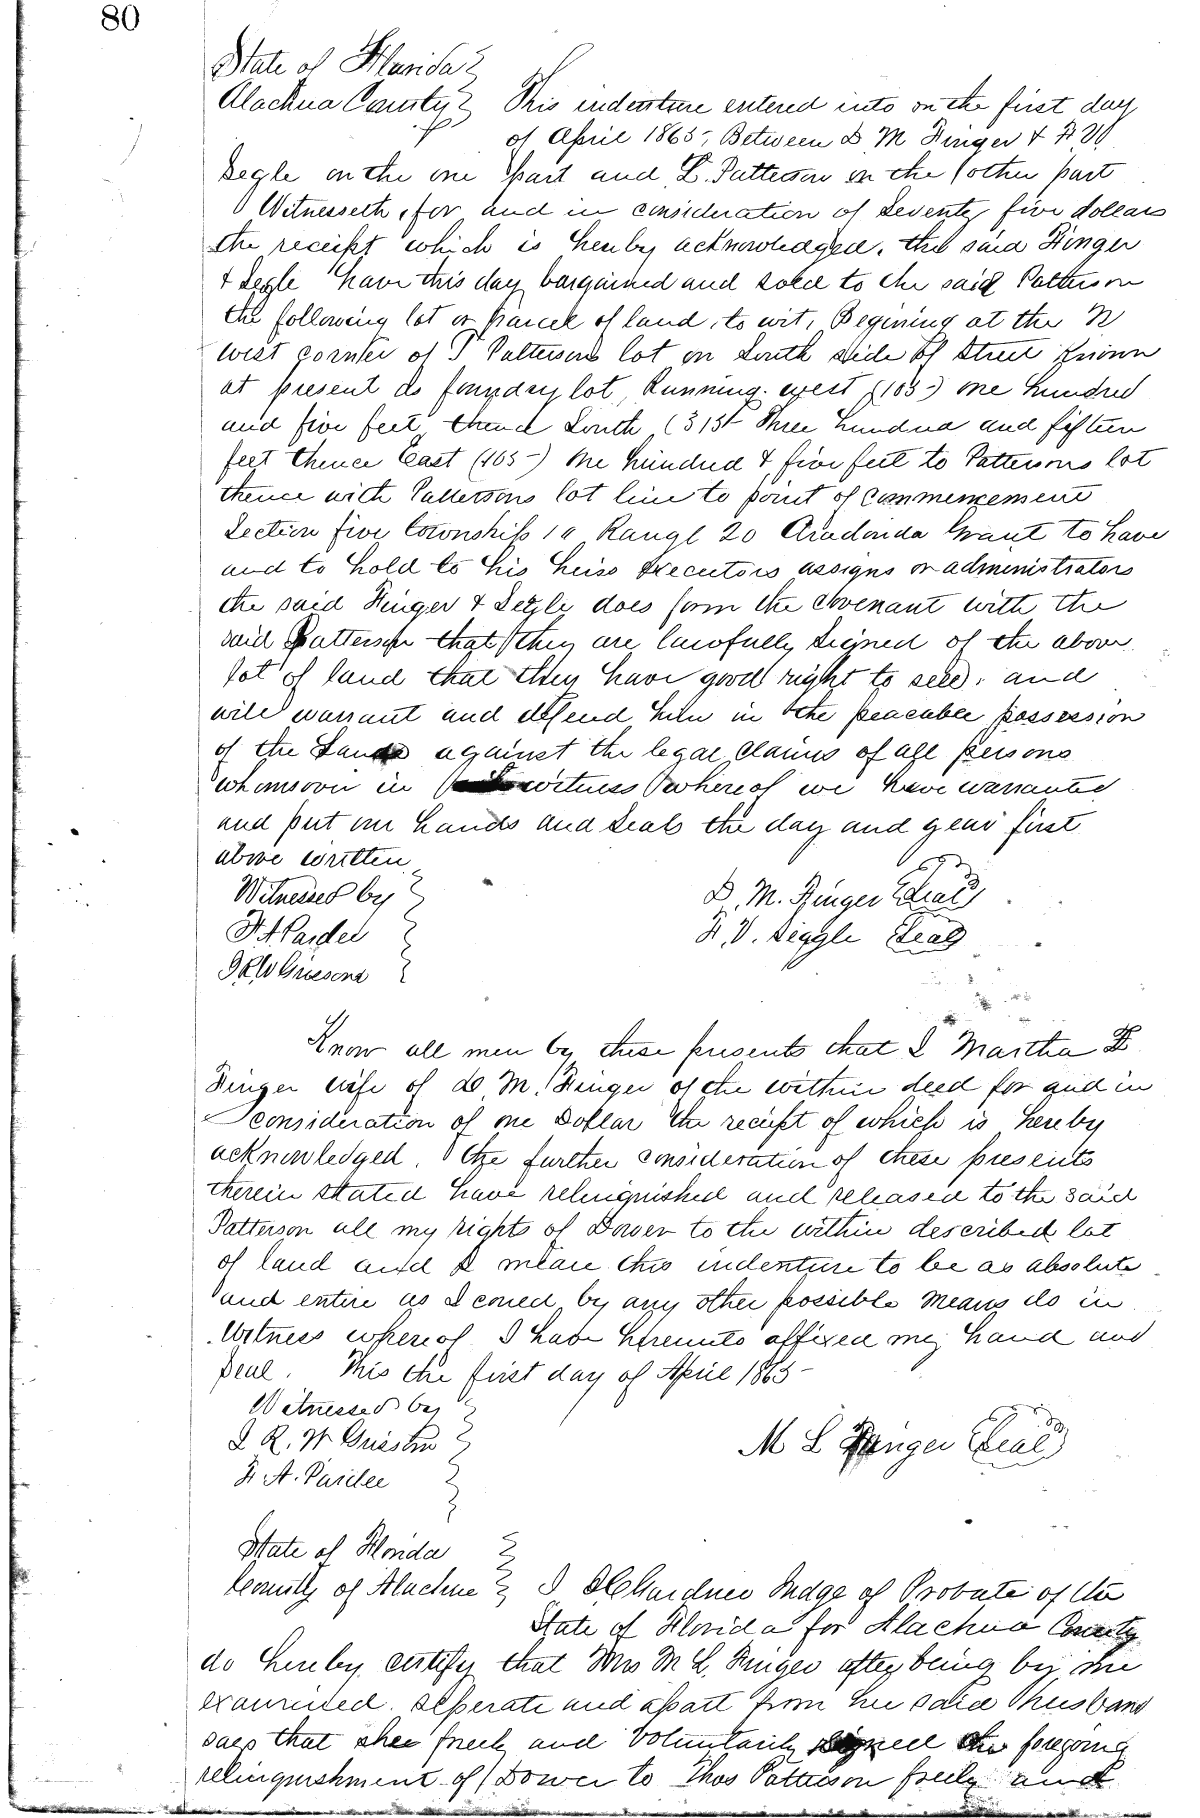 80
State of Florida
Alachua County This indenture entered into on the first day
of April 1865, Between D. M. Finger & F. V.
Segle on the one part and L. Patterson on the other part
Witnesseth, for and in consideration of Seventy five dollars
the receipt which is hereby acknowledged. the said Finger
& Segle have this day bargained and sold to the said Patterson
the following lot or parcel of land, to wit, Begining at the N
west corner of T Pattersons lot on South side of Street known
at present as foundry lot, Running west (105) one hundred
and five feet thence South (315 Three hundred and fifteen
feet thence East (105) One hundred & five feet to Pattersons lot
thence with Pattersons lot line to point of Commencement
Section five township 10 Range 20 Aradonda Grant to have
and to hold to his heirs Executors assigns or administrators
the said Finger & Segle does form the Covenant with the
said Patterson that they are lawfully Seigned of the above
lot of land that they have good right to sell, and
will warrant and defend him in the peaceable possession
of the Land against the legal claims of all persons
whomsover in witness whereof we have warranted
and put our hands and Seals the day and year first
above written
Witnessed by D. M. Finger Seal
F. A. Pardee F. V. Seggle Seal
J R W
Know all men by these presents that I Martha
Finger wife of D. M. Finger of the within deed for and in
consideration of one Dollar the receipt of which is hereby
acknowledged. the further consideration of these presents
therein stated have relinquished and released to the said
Patterson all my rights of Dower to the within described lot
of land and I mean this indenture to be as absolute
and entire as I coued by any other possible means do in
Witness whereof I have hereunto affixed my hand and
Seal. This the first day of April 1865
Witnessed by
J. R. W. M L Finger Seal
F. A. Pardee
State of Florida
County of Alachua I Gardner Judge of Probate of the
State of Florida for Alachua County
do hereby certify that Mrs M. L. Finger after being by me
examined seperate and apart from her said husband
says that shee freely and voluntarily signed the foregoing
relinquishment of Dower to Thos Patterson freely and